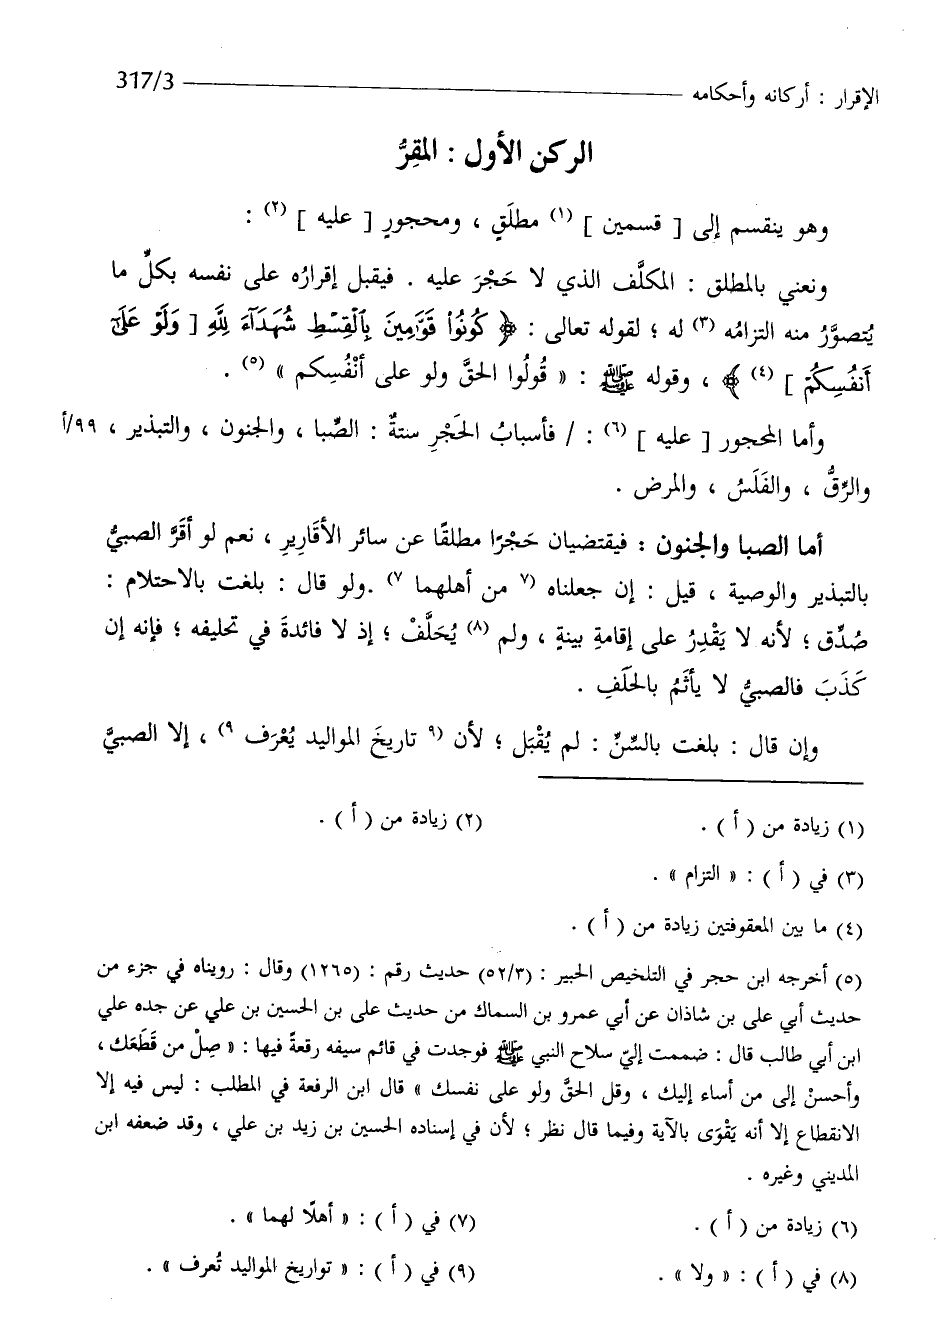 الإقرار : أركانه وأحكامه 317/3
الركن الأول : المقِرُّ
وهو ينقسم إلى [ قسمين ] (١) مطلَقٍ ، ومحجورٍ [ عليه ] (٢) :
ونعني بالمطلق : المكلَّف الذي لا حَجْرَ عليه . فيقبل إقرارُه على نفسه بكلِّ ما
يُتصوَّرُ منه التزامُه (٣) له ؛ لقوله تعالى : ﴿ كُونُوا۟ قَوَّٰمِينَ بِٱلْقِسْطِ شُهَدَآءَ لِلَّهِ [ وَلَوْ عَلَىٰٓ
أَنفُسِكُمْ ] (٤) ﴾ ، وقوله ﷺ : « قُولُوا الحَقَّ ولو على أنْفُسِكم » (٥) .
وأما المحجور [ عليه ] (٦) : / فأسبابُ الحَجْرِ ستةٌ : الصِّبا ، والجنون ، والتبذير ، ٩٩/أ
والرِّقُّ ، والفَلَسُ ، والمرض .
أما الصبا والجنون : فيقتضيان حَجْرًا مطلقًا عن سائر الأقَارِيرِ ، نعم لو أقَرَّ الصبيُّ
بالتبذير والوصية ، قيل : إن جعلناه (٧ من أهلهما ٧) .ولو قال : بلغت بالاحتلام :
صُدِّق ؛ لأنه لا يَقْدِرُ على إقامةِ بينةٍ ، ولم (٨) يُحَلَّفْ ؛ إذ لا فائدةَ في تحليفه ؛ فإنه إن
كَذَبَ فالصبيُّ لا يأثَمُ بالحَلَفِ .
وإن قال : بلغت بالسِّنِّ : لم يُقْبَل ؛ لأن (٩ تاريخَ المواليد يُعْرَف ٩) ، إلا الصبيَّ
(١) زيادة من ( أ ) . (٢) زيادة من ( أ ) .
(٣) في ( أ ) : « التزام » .
(٤) ما بين المعقوفتين زيادة من ( أ ) .
(٥) أخرجه ابن حجر في التلخيص الحبير : (٥٢/٣) حديث رقم : (١٢٦٥) وقال : رويناه في جزء من
حديث أبي على بن شاذان عن أبي عمرو بن السماك من حديث على بن الحسين بن علي عن جده علي
ابن أبي طالب قال : ضممت إليّ سلاح النبي ﷺ فوجدت في قائم سيفه رقعةً فيها : « صِلْ من قَطَعَك ،
وأحسنْ إلى من أساء إليك ، وقل الحقَّ ولو على نفسك » قال ابن الرفعة في المطلب : ليس فيه إلا
الانقطاع إلا أنه يَقْوَى بالآية وفيما قال نظر ؛ لأن في إسناده الحسين بن زيد بن علي ، وقد ضعفه ابن
المديني وغيره .
(٦) زيادة من ( أ ) . (٧) في ( أ ) : « أهلًا لهما » .
(٨) في ( أ ) : « ولا » . (٩) في ( أ ) : « تواريخ المواليد تُعرف » .